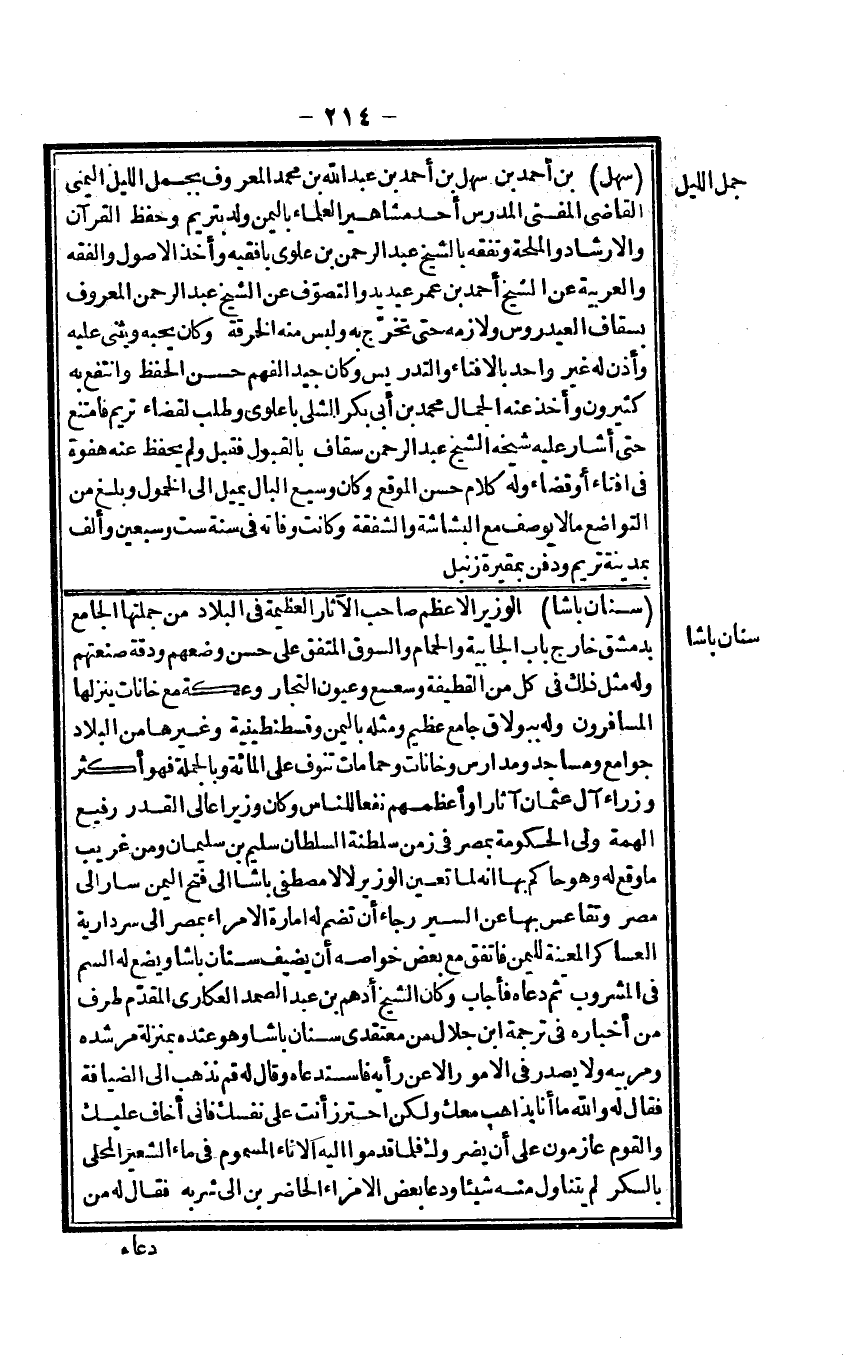 - ٢١٤ -
جمل الليل
(سهل) بن أحمد بن سهل بن أحمد بن عبد الله بن محمد المعروف بجمل الليل اليمنى
القاضى المفتى المدرس أحد مشاهير العلماء باليمن ولد بتريم وحفظ القرآن
والارشاد والملحة وتفقه بالشيخ عبد الرحمن بن علوى بافقيه وأخذ الاصول والفقه
والعربية عن الشيخ أحمد بن عمر عيديد والتصوّف عن الشيخ عبد الرحمن المعروف
بسقاف العيدروس ولازمه حتى تخرّج به ولبس منه الخرقة وكان يحبه ويثنى عليه
وأذن له غير واحد بالافتاء والتدريس وكان جيد الفهم حسن الحفظ وانتفع به
كثيرون وأخذ عنه الجمال محمد بن أبى بكر الشلى باعلوى وطلب لقضاء تريم فامتنع
حتى أشار عليه شيخه الشيخ عبد الرحمن سقاف بالقبول فقبل ولم يحفظ عنه هفوة
فى افتاء أو قضاء وله كلام حسن الموقع وكان وسيع البال يميل الى الخمول وبلغ من
التواضع مالا يوصف مع البشاشة والشفقة وكانت وفاته فى سنة ست وسبعين وألف
بمدينة تريم ودفن بمقبرة زنبل
سنان باشا
(سنان باشا) الوزير الاعظم صاحب الآثار العظيمة فى البلاد من جملتها الجامع
بدمشق خارج باب الجابية والحمام والسوق المتفق على حسن وضعهم ودقة صنعتهم
وله مثل ذلك فى كل من القطيفة وسعسع وعيون التجار وعكة مع خانات ينزلها
المسافرون وله ببولاق جامع عظيم ومثله باليمن وقسطنطينية وغيرها من البلاد
جوامع ومساجد ومدارس وخانات وحمامات تنوف على المائة وبالجملة فهو أكثر
وزراء آل عثمان آثارا وأعظمهم نفعا للناس وكان وزيرا عالى القدر رفيع
الهمة ولى الحكومة بمصر فى زمن سلطنة السلطان سليم بن سليمان ومن غريب
ما وقع له وهو حاكم بها انه لما تعين الوزير لالا مصطفى باشا الى فتح اليمن سار الى
مصر وتقاعس بها عن السير رجاء أن تضم له امارة الامراء بمصر الى سردارية
العساكر المعينة لليمن فاتفق مع بعض خواصه أن يضيف سنان باشا ويضع له السم
فى المشروب ثم دعاه فأجاب وكان الشيخ أدهم بن عبد الصمد العكارى المقدّم طرف
من أخباره فى ترجمة ابن جلال من معتقدى سنان باشا وهو عنده بمنزلة مرشده
ومربيه ولا يصدر فى الامور الا عن رأيه فاستدعاه وقال له قم نذهب الى الضيافة
فقال له والله ما أنا بذاهب معك ولكن احترز أنت على نفسك فانى أخاف عليك
والقوم عازمون على أن يضروك فلما قدموا اليه الاناء المسموم فى ماء الشعير المحلى
بالسكر لم يتناول منه شيئا ودعا بعض الامراء الحاضرين الى شربه فقال له من
دعاء